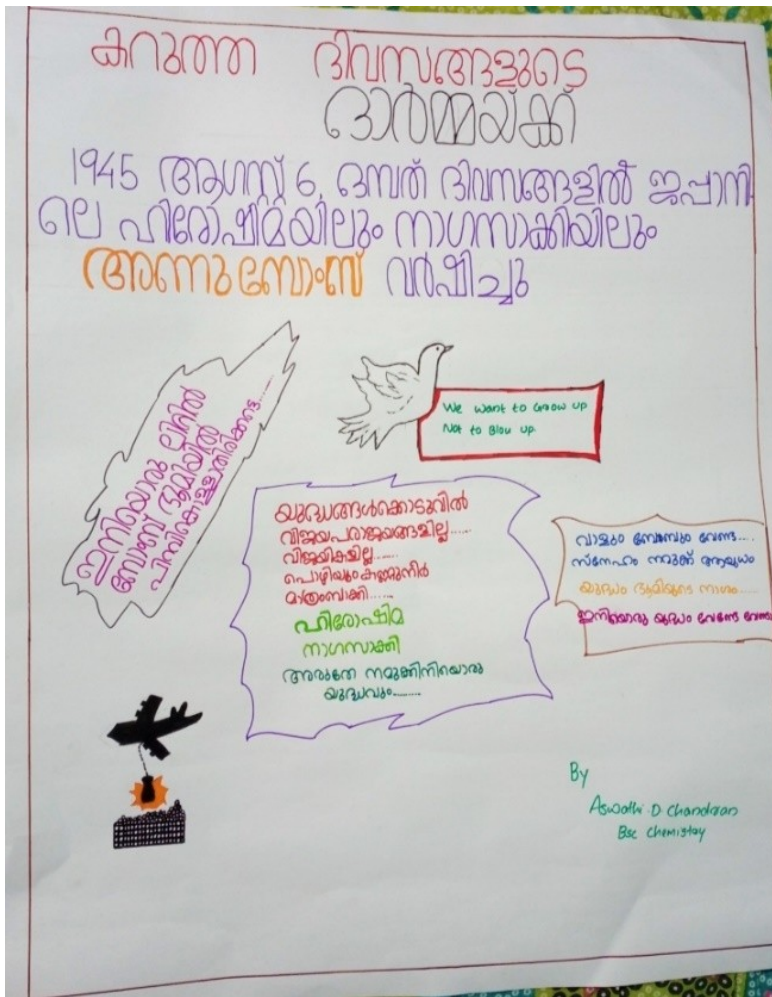 കറുത്ത ദിവസങ്ങളുടെ
ഓർമ്മയ്ക്ക്
1945 ആഗസ്റ്റ് 6, ഒമ്പത് ദിവസങ്ങളിൽ ജപ്പാനി
ലെ ഹിരോഷിമയിലും നാഗസാക്കിയിലും
അണുബോംബ് വർഷിച്ചു
ഇനിയൊരു ലിറ്റിൽ
ബോയ് ഭൂമിയിൽ
പിറവികൊള്ളാതിരിക്കട്ടെ......
We want to Grow up
Not to Blow up.
യുദ്ധങ്ങൾക്കൊടുവിൽ
വിജയപരാജയങ്ങളില്ല......
വിജയികളില്ല......
പൊഴിയും കണ്ണുനീർ
മാത്രംബാക്കി......
ഹിരോഷിമ
നാഗസാക്കി
അരുതേ നമുക്കിനിയൊരു
യുദ്ധവും........
വാളും ബോംബും വേണ്ട....
സ്നേഹം നമുക്ക് ആയുധം
യുദ്ധം ഭൂമിയുടെ നാശം.....
ഇനിയൊരു യുദ്ധം വേണ്ടേ വേണ്ട
By
Aswathi D Chandran
Bsc Chemistry